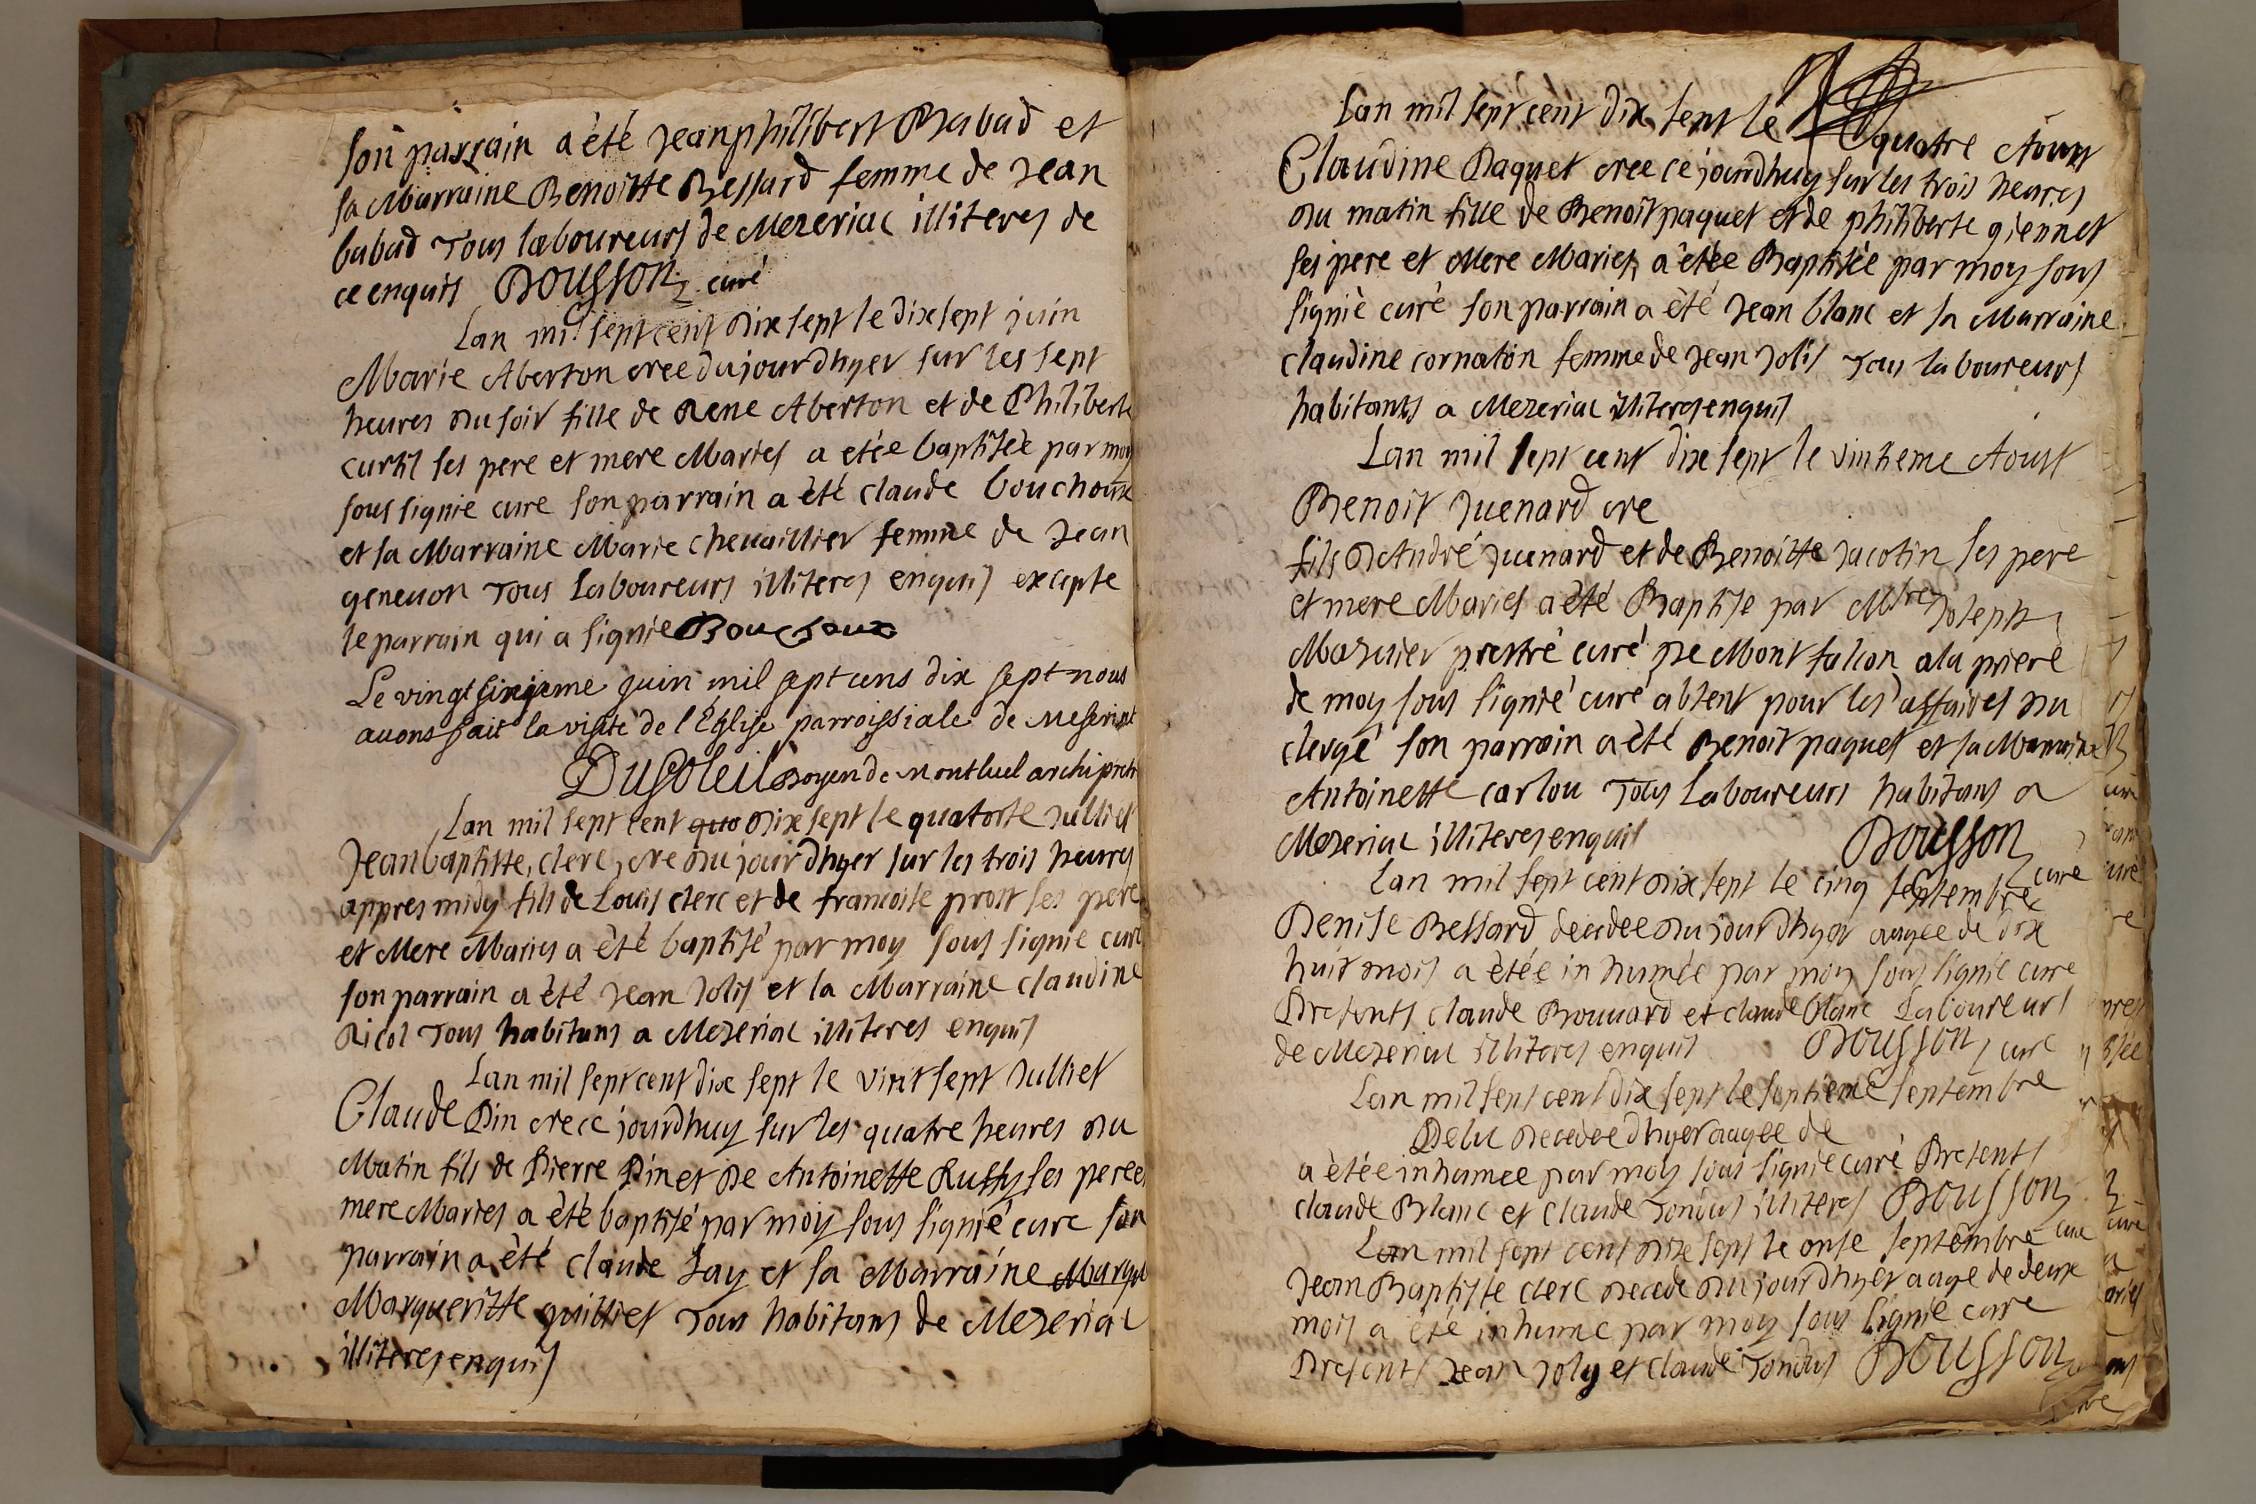 son parrain a èté Jean philibert Babad et
sa Marraine Benoitte Bessard femme de Jean
babad Tous laboureurs de Mezeriac illiteres de
ce enquits Bousson curé
Lan mil sept cent dix sept le dix sept juin
Marie Aberton cree du jour dhyer sur les sept
heures du soir fille de Rene Aberton et de Philiberte
curtil ses pere et mere Maries a etée baptisèe par moy
sous signie cure son parrain a èté claude bouchoux
et sa Marraine Marie chevaillier femme de Jean
genevon Tous Laboureurs illiteres enquis excepte
le parrain qui a signie Bouchoux
Le vingt sixieme juin mil sept cens dix sept nous
avons fait la visite de l'Eglise parroissiale de Meseriat
DuSoleil Doyen de Montluel archipretre
Lan mil sept cent quo dix sept le quatorse Julliet
Jean baptiste, clerc, cre du jour dhyer sur les trois heures
appres midy fils de Louis clerc et de francoise prost ses pere
et Mere Maries a èté baptisé par moy sous signie curé
son parrain a èté Jean Jolis et la Marraine claudine
Ricol Tous habitans a Mezeriac illiteres enquis
Lan mil sept cent dix sept le vint sept Julliet
Claude Pin cre ce jourdhuy sur les quatre heures du
Matin fils de Pierre Pin et De Antoinette Ruffy ses pere et
mere Maries a èté baptisé par moy sous signié cure son
parrain a èté claude Lay et sa Marraine Margue
Margueritte guilliet Tous habitans de Mezeriac
illiteres enquis
Lan mil sept cent dix sept le quatre Aoust
Claudine Paquet cree ce jourdhuy sur les trois heures
du matin fille de Benoit paquet et de philiberte giennet
ses pere et Mere Maries, a êtée Baptisée par moy sous
signiè curé son parrain a èté Jean blanc et sa Marraine
claudine cornaton femme de Jean Jolis Tous laboureurs
habitants a Mezeriac illiteres enquis
Lan mil sept cent dix sept le vintieme Aoust
Benoit Juenard cre
fils d'André juenard et de Benoitte Jacotin ses pere
et mere Maries a èté Baptise par Mtre Joseph
Mazuier prestre curé De Mont falcon a la priere
de moy sous signié curé absent pour les affaires du
clergé son parrain a èté Benoit paquet et sa Marraine
Antoinette carlou Tous Laboureurs habitans a
Mezeriac illiteres enquis Bousson curé
Lan mil sept cent dix sept le cinq septembre
Denise Bessard decedee du jour dhyer augee de dix
huit mois a ètée inhumée par moy sous signie cure
Presents claude Brouard et claude blanc Laboureurs
de Mezeriac illiteres enquis Bousson cure
Lan mil sept cent dix sept le septieme septembre
Decedee dhyer augee de
a ètée inhumee par moy sous signie curé Presents
claude Blanc et claude Tondus illiteres Bousson cure
Lan mil sept cent dix sept le onse septembre
Jean Baptiste clerc decede du jour dhyer auge de deux
mois a èté inhume par moy sous signie cure
Presents Jean Joly et claude Tondus Bousson